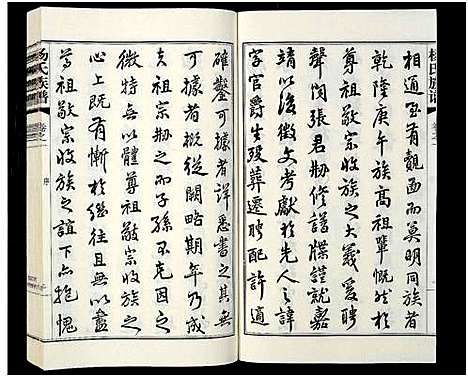 楊氏族譜
卷之一
相通至有覿面而莫明同族者
乾隆庚午族高祖輩慨然於
尊祖敬宗收族之大義爰聘
聲閎張君剏修譜牒謹就嘉
靖以後徵文考獻於先人之諱
字官爵生歿葬遷聘配許適
確鑿可據者詳悉書之其無
可據者概從闕略期年乃成
夫祖宗剏之而子孫不克因之
微特無以體尊祖敬宗收族之
心上既有慚於繼往且無以盡
尊祖敬宗收族之誼下亦抱愧
楊氏族譜
卷之一
序